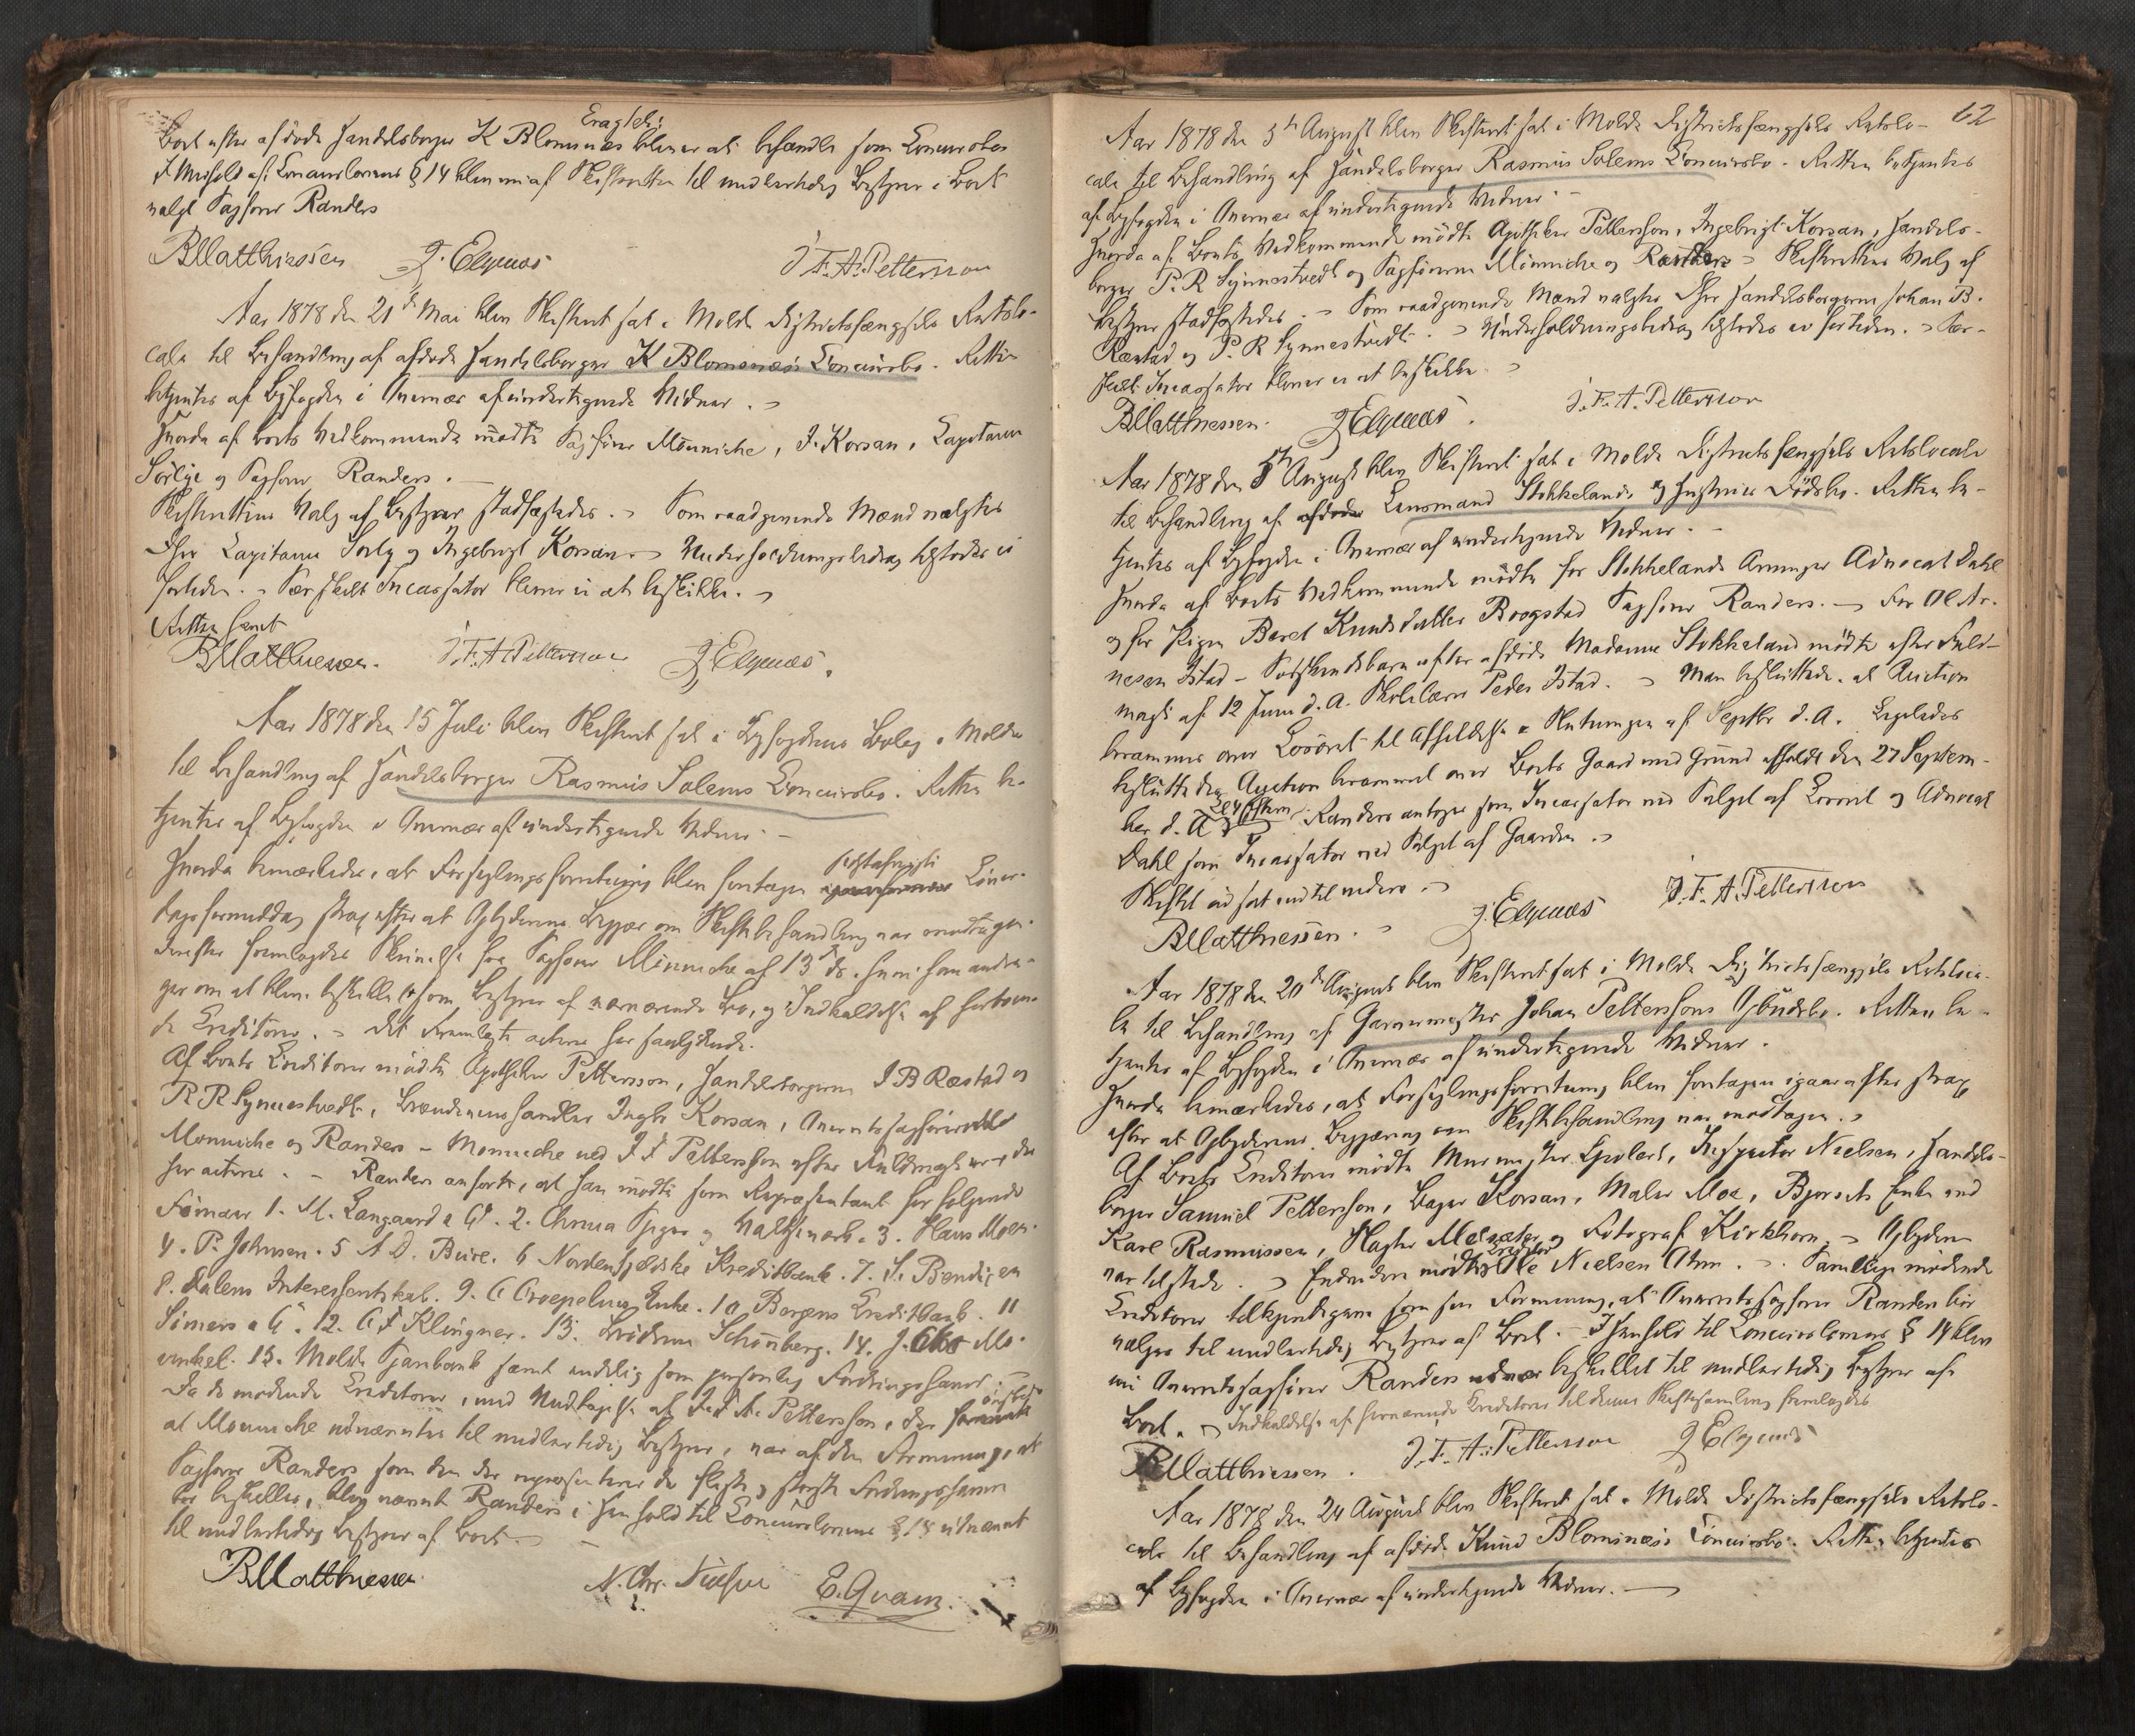 Eragtes:
Boet efter afdøde Handelsborger K Blomsnæs bliver at behandle som Concursbo
I Henhold af Concurslovens § 14 blev nu af Skifteretten til midlertidig Bestyrer i Boet
valgt Sagfører Randers
BMatthiessen J. Elgenæs J. F. A. Pettersson
Aar 1878 den 21de Mai blev Skifteret sat i Molde Districtsfængsels Retslo-
cale til Behandling af afdøde Handelsborger K Blomsnæs's Concursbo. Retten
betjentes af Byfogden i Overvær af undertegnede Vidner.
Hvorda af Boets Vedkommende mødte Sagfører Münniche, I. Korsan, Capitain
Sørlye og Sagfører Randers.
Skifterettens Valg af Bestyrer stadfæstedes. Som raadgivende Mænd valgtes
Dhrr Capitain Sørly og Ingebrigt Korsan. Underholdningsbidrag tilstodes ei
fortiden. Særskilt Incassator bliver ei at beskikke.
Retten hævet
BMatthiessen. J. F. A. Pettersson J. Elgenæs.
Aar 1878 den 15 Juli blev Skifteret sat i Byfogdens Bolig i Molde
til Behandling af Handelsborger Rasmus Solems Concursbo. Retten be-
tjentes af Byfogden i Overvær af undertegnede Vidner.
Hvorda bemærkedes, at Forseglingsforretning blev foretagen sidstafvigte Løver-
dags formiddag strax efter at Opbyderens Begjær om Skiftebehandling var modtagen.
Derefter fremlagdes Skrivelse fra Sagfører Münniche af 13de ds. hvori han andra-
ger om at blive beskikket som Bestyrer af nærværende Bo, og Indkaldelse af herboen-
de Creditorer. Det Fremlagte acteres her saalydende.
Af Boets Creditorer mødte Apotheker Pettersson, Handelsborgerne J B Røstad og
P R Synnestvedt, Brændeviinshandler Ingbr Korsan, Overretssagførerne
Münniche og Randers - Münniche ved J F Pettersson efter Fuldmagt som
her acteres. Randers anførte, at han mødte som Repræsentant for følgende
Firmaer 1. M. Langaard & Co. 2. Chria Spiger og Valseværk. 3. Hans Moe.
4. P. Johnsen. 5 A. D. Bure. 6 Nordenfjeldske Kreditbank. 7. S. Bendixen
8. Salem Interessentskab. 9. C Groepelius Enke. 10 Bergens Creditbank. 11
Simers & Co. 12. C F Klingner. 13. Brødrene Schønberg. 14. J. Mo-
winkel. 15. Molde Sparebank samt endelig som personlig Fordringshaver.
Da de mødende Creditorer, med Undtagelse af J. F. A. Pettersson, der ønskede
at Münniche udnævntes til midlertidig Bestyrer, var af den Formening, at
Sagfører Randers som den der repræsenterer de fleste og største Fordringshavere
bør beskikkes, blev nævnte Randers i Henhold til Concurslovens § 14 udnævnt
til midlertidig Bestyrer af Boet.
BMatthiessen N. Chr. Nielsen E. Qvam.
62
Aar 1878 den 5te August blev Skifteret sat i Molde Districtsfængsels Retslo-
cale til Behandling af Handelsborger Rasmus Solems Concursbo. Retten betjentes
af Byfogden i Overvær af undertegnede Vidner.
Hvorda af Boets Vedkommende mødte Apotheker Pettersson, Ingebrigt Korsan, Handels-
borger P. R Synnestvedt og Sagførerne Münniche og Randers. Skifterettens Valg af
Bestyrer stadfæstedes. Som raadgivende Mænd valgtes Dhrr Handelsborgerne Johan B.
Røstad og P. R Synnestvedt. Underholdningsbidrag tilstodes ei forliden. Sær-
skilt Incassator bliver ei at beskikke.
BMatthiessen. J Elgenæs. J. F. A. Pettersson
Aar 1878 den 5te August blev Skifteret sat i Molde Districtsfængsels Retslocale
til Behandling af afdøde Lensmand Stokkelands og Hustrues Dødsbo. Retten be-
tjentes af Byfogden i Overvær af undertegnede Vidner.
Hvorda af Boets Vedkommende mødte for Stokkelands Arvinger Advocat Dahl
og for Pigen Beret Knudsdatter Brogstad Sagfører Randers. For Ol Ar-
nesen Istad - Sødskendebarn efter afdøde Madame Stokkeland mødte efter Fuld-
magt af 12 Juni d. A. Skolelærer Peder Istad. Man besluttede, at Auction
berammes over Løsøret til Afholdelse i Slutningen af Septbr d. A. Ligeledes
besluttedes Auction berammet over Boets Gaard med Grund afholdt den 27 Septem-
ber d. A. Randers antages som Incassator ved Salget af Løsøret og Advocat
Dahl som Incassator ved Salget af Gaarden.
Skiftet udsat indtil videre.
BMatthiessen. J. Elgenæs J. F. A. Pettersson
Aar 1878 den 20de August blev Skifteret sat i Molde Districtsfængsels Retsloca-
le til Behandling af Garvermester Johan Petterssons Opbudsbo. Retten be-
tjentes af Byfogden i Overvær af undertegnede Vidner.
Hvorda bemærkedes, at Forseglingsforretning blev foretagen igaar aftes strax
efter at Opbyderens Begjæring om Skiftebehandling var modtagen.
Af Boets Creditorer mødte Muurmester Eyolert, Inspector Nielsen, Handels-
borger Samuel Pettersson, Bager Korsan, Maler Moe, Bjorseths Enke ved
Karl Rasmussen, Slagter Melsæter og Fotograf Kirkhorn. Opbyderen
var tilstede. Endvidere mødte Creditor Ole Nielsen Ohrn. Samtlige mødende
Creditorer tilkjendegave som sin Formening, at Overretssagfører Randers bør
vælges til midlertidig Bestyrer af Boet. I Henhold til Concurslovens § 14 blev
nu Overretssagfører Randers beskikket til midlertidig Bestyrer af
Boet. Indkaldelse af herværende Creditorer til denne Skiftesamling fremlagdes
BMatthiessen. J. F. A. Pettersson J Elgenæs
Aar 1878 den 24 August blev Skifteret sat i Molde Districtsfængsels Retslo-
cale til Behandling af afdøde Knud Blomsnæs's Concursbo. Retten betjentes
af Byfogden i Overvær af undertegnede Vidner.